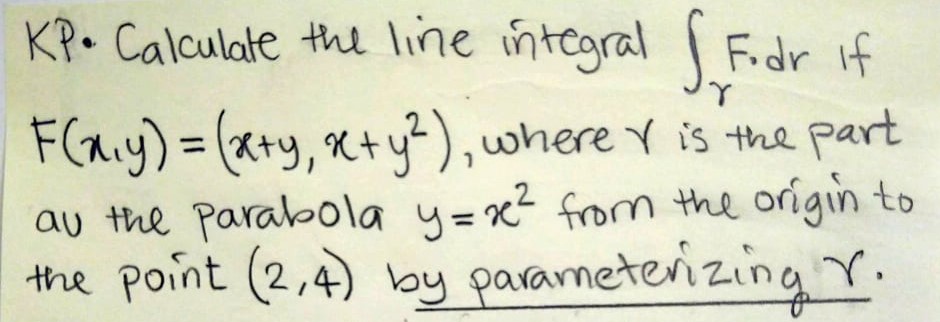 KP. Calculate the line integral ∫_γ F·dr if
F(x,y) = (x+y, x+y²), where γ is the part
au the parabola y=x² from the origin to
the point (2,4) by parameterizing γ.